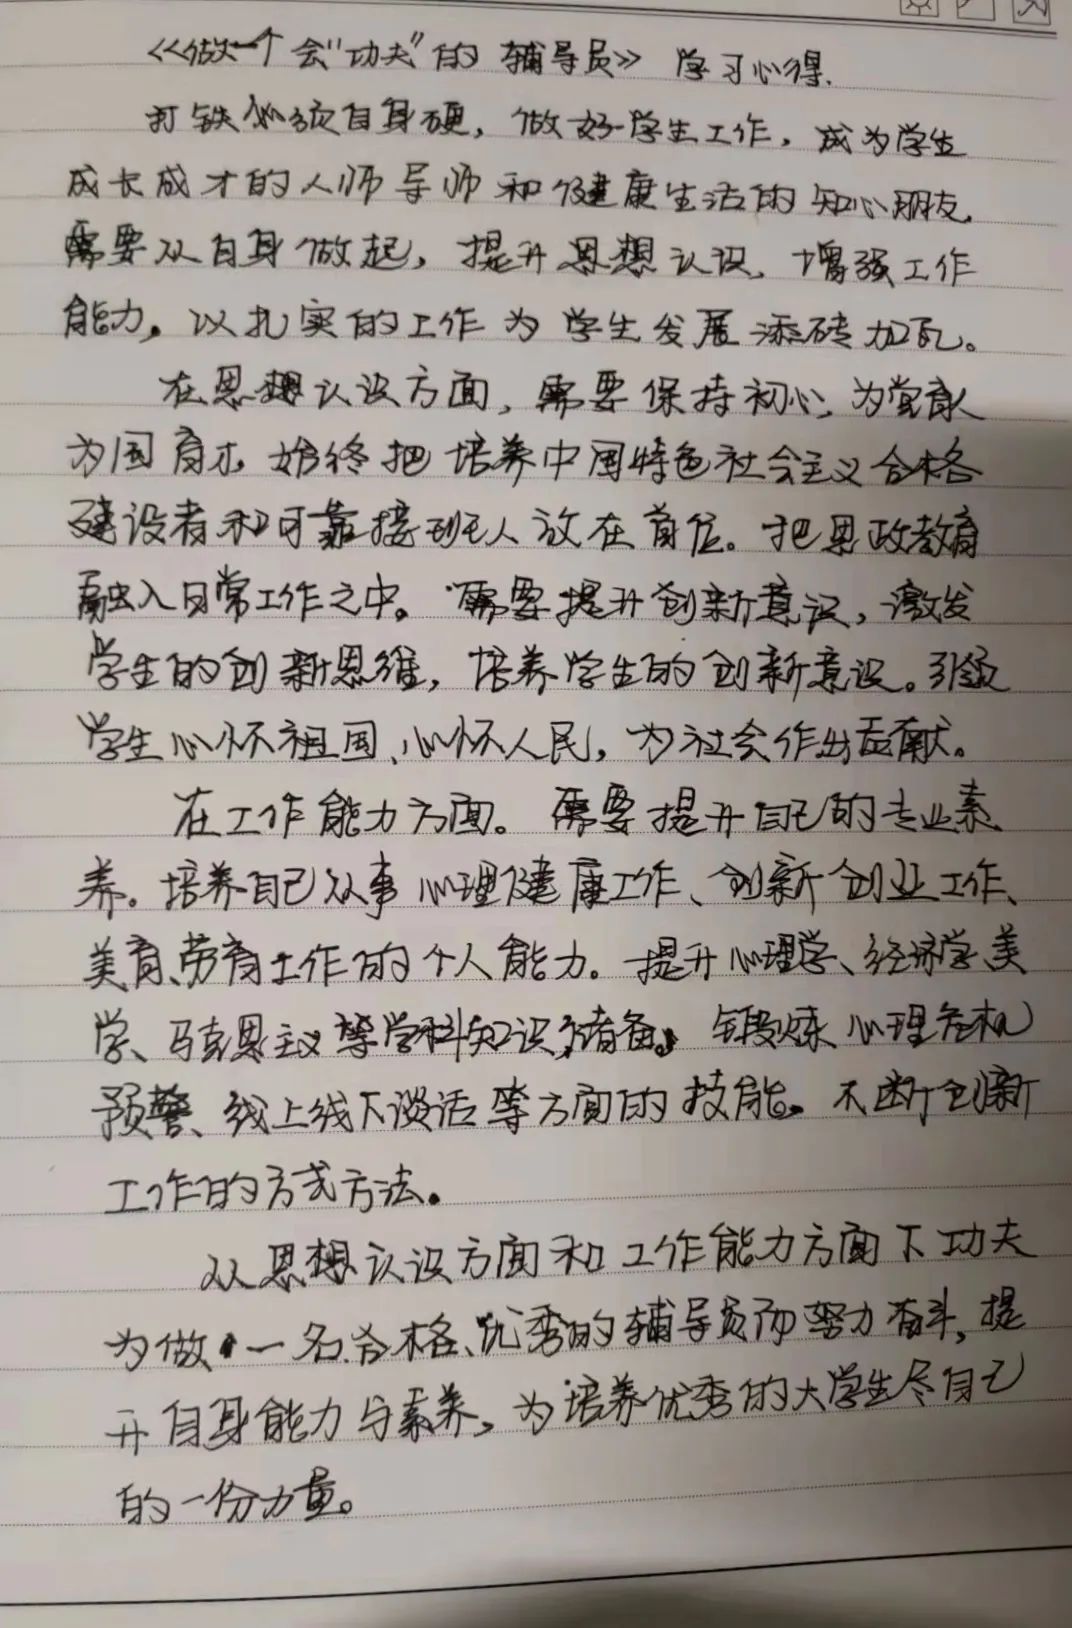 《做一个会“功夫”的辅导员》学习心得.
打铁必须自身硬，做好学生工作，成为学生
成长成才的人师导师和健康生活的知心朋友，
需要从自身做起，提升思想认识，增强工作
能力，以扎实的工作为学生发展添砖加瓦。
在思想认识方面，需要保持初心，为党育人
为国育才，始终把培养中国特色社会主义合格
建设者和可靠接班人放在首位。把思政教育
融入日常工作之中。需要提升创新意识，激发
学生的创新思维，培养学生的创新意识。引领
学生心怀祖国、心怀人民，为社会作出贡献。
在工作能力方面。需要提升自己的专业素
养。培养自己从事心理健康工作、创新创业工作、
美育、劳育工作的个人能力。提升心理学、经济学、美
学、马克思主义等学科知识储备。锻炼心理危机
预警、线上线下谈话等方面的技能。不断创新
工作的方式方法。
从思想认识方面和工作能力方面下功夫
为做一名合格、优秀的辅导员而努力奋斗，提
升自身能力与素养，为培养优秀的大学生尽自己
的一份力量。